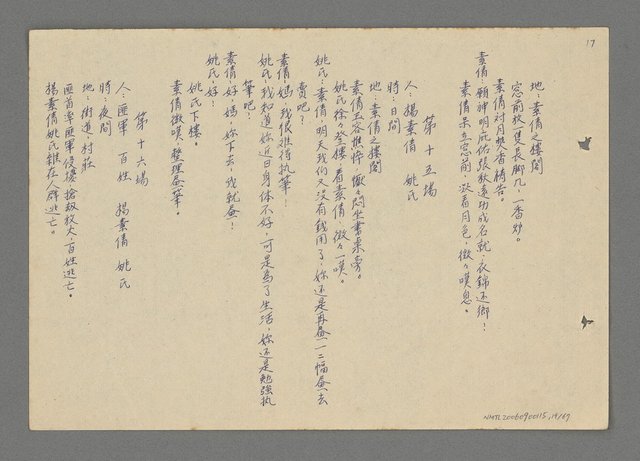 17
地：素倩之樓閣
窓前放一隻長脚几，一香炉。
素倩対月焚香禱告。
素倩：願神明庇佑張秋遠功成名就，衣錦还鄉！
素倩呆立窓前，凝看月色，微々嘆息。
第十五場
人：楊素倩　姚氏
時：日间
地：素倩之樓閣
素倩玉容焦悴，懨々悶坐書桌旁。
姚氏徐々登樓，看素倩，微々一嘆。
姚氏：素倩，明天我们又没有錢用了，妳还是再画一二幅画去
賣吧？
素倩：媽，我很难待执筆！
姚氏：我知道妳近日身体不好，可是為了生活，妳还是勉強执
筆吧？
素倩：好，媽，妳下去，我就画！
姚氏：好！
姚氏下樓。
素倩微嘆，整理画筆。
第十六場
人：匪軍　百姓　楊素倩　姚氏
時：夜间
地：街道，村莊
匪首率匪軍侵擾，搶級放火，百姓逃亡。
楊素倩姚氏雜在人群逃亡。
NMTL20060900115,19/67